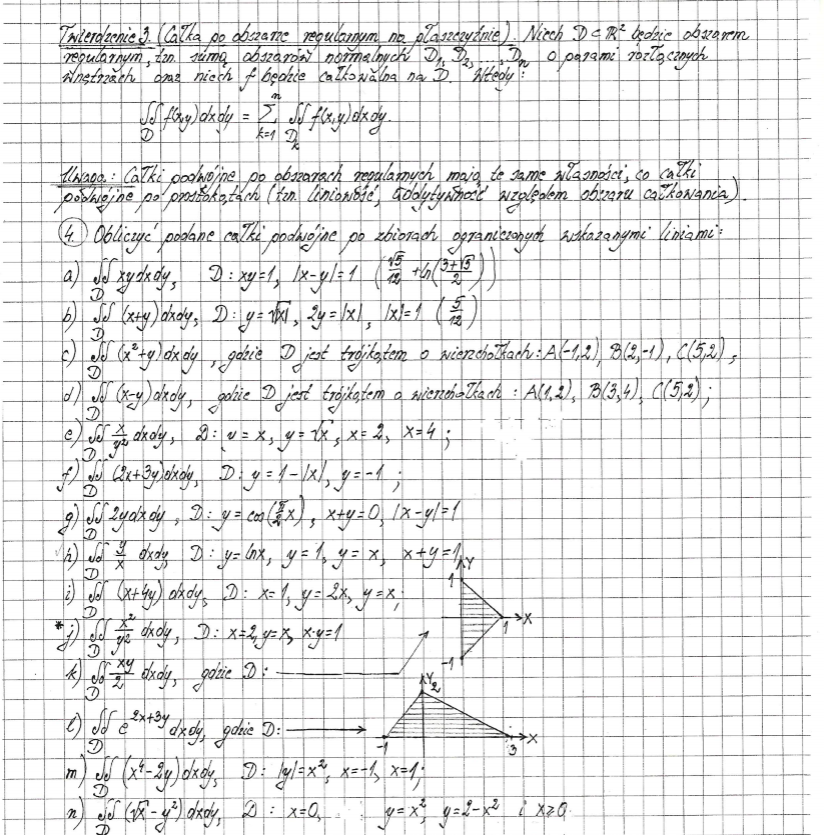 Twierdzenie 3. (Całka po obszarze regularnym na płaszczyźnie). Niech D ⊂ ℝ² będzie obszarem
regularnym, tzn. sumą obszarów normalnych D₁, D₂, ..., Dₙ o parami rozłącznych
wnętrzach oraz niech f będzie całkowalna na D. Wtedy:
∬_D f(x,y)dxdy = Σ_{k=1}^{n} ∬_{D_k} f(x,y)dxdy.
Uwaga: Całki podwójne po obszarach regularnych mają te same własności, co całki
podwójne po prostokątach (tzn. liniowość, addytywność względem obszaru całkowania).
4. Obliczyć podane całki podwójne po zbiorach ograniczonych wskazanymi liniami:
a) ∬_D xydxdy, D: xy=1, |x-y|=1 (√5/12 + ln((3+√5)/2))
b) ∬_D (x+y)dxdy, D: y=√|x|, 2y=|x|, |x|=1 (5/12)
c) ∬_D (x²+y)dxdy, gdzie D jest trójkątem o wierzchołkach: A(-1,2), B(2,-1), C(5,2);
d) ∬_D (x-y)dxdy, gdzie D jest trójkątem o wierzchołkach: A(1,2), B(3,4), C(5,2);
e) ∬_D x/y² dxdy, D: y=x, y=√x, x=2, x=4;
f) ∬_D (2x+3y)dxdy, D: y=1-|x|, y=-1;
g) ∬_D 2ydxdy, D: y=cos(5/2 x), x+y=0, |x-y|=1
h) ∬_D y/x dxdy, D: y=lnx, y=1, y=x, x+y=1,
i) ∬_D (x+4y)dxdy, D: x=1, y=2x, y=x;
*j) ∬_D x²/y² dxdy, D: x=2, y=x, x·y=1
k) ∬_D xy/2 dxdy, gdzie D:
Y
1
1
X
-1
l) ∬_D e^{2x+3y} dxdy, gdzie D:
Y
2
-1
3
X
m) ∬_D (x⁴-2y)dxdy, D: |y|=x², x=-1, x=1;
n) ∬_D (√x-y²)dxdy, D: x=0, y=x², y=2-x² i x≥0